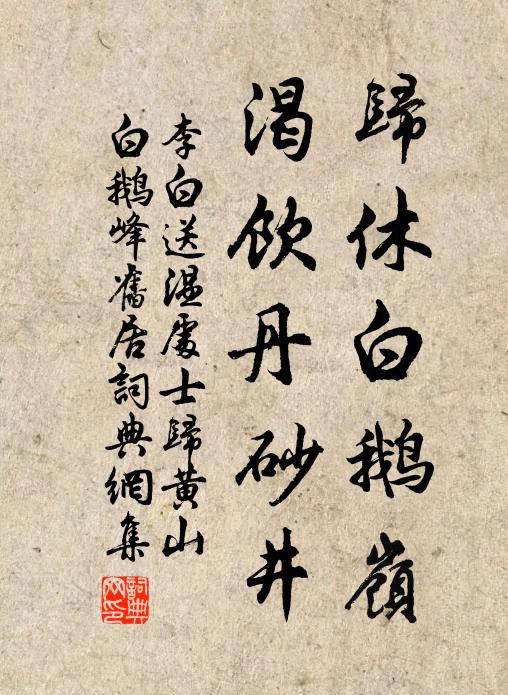 歸休白鵝嶺
渴飲丹砂井
李白送溫處士歸黃山
白鵝峰舊居詞典網集
詞典網印